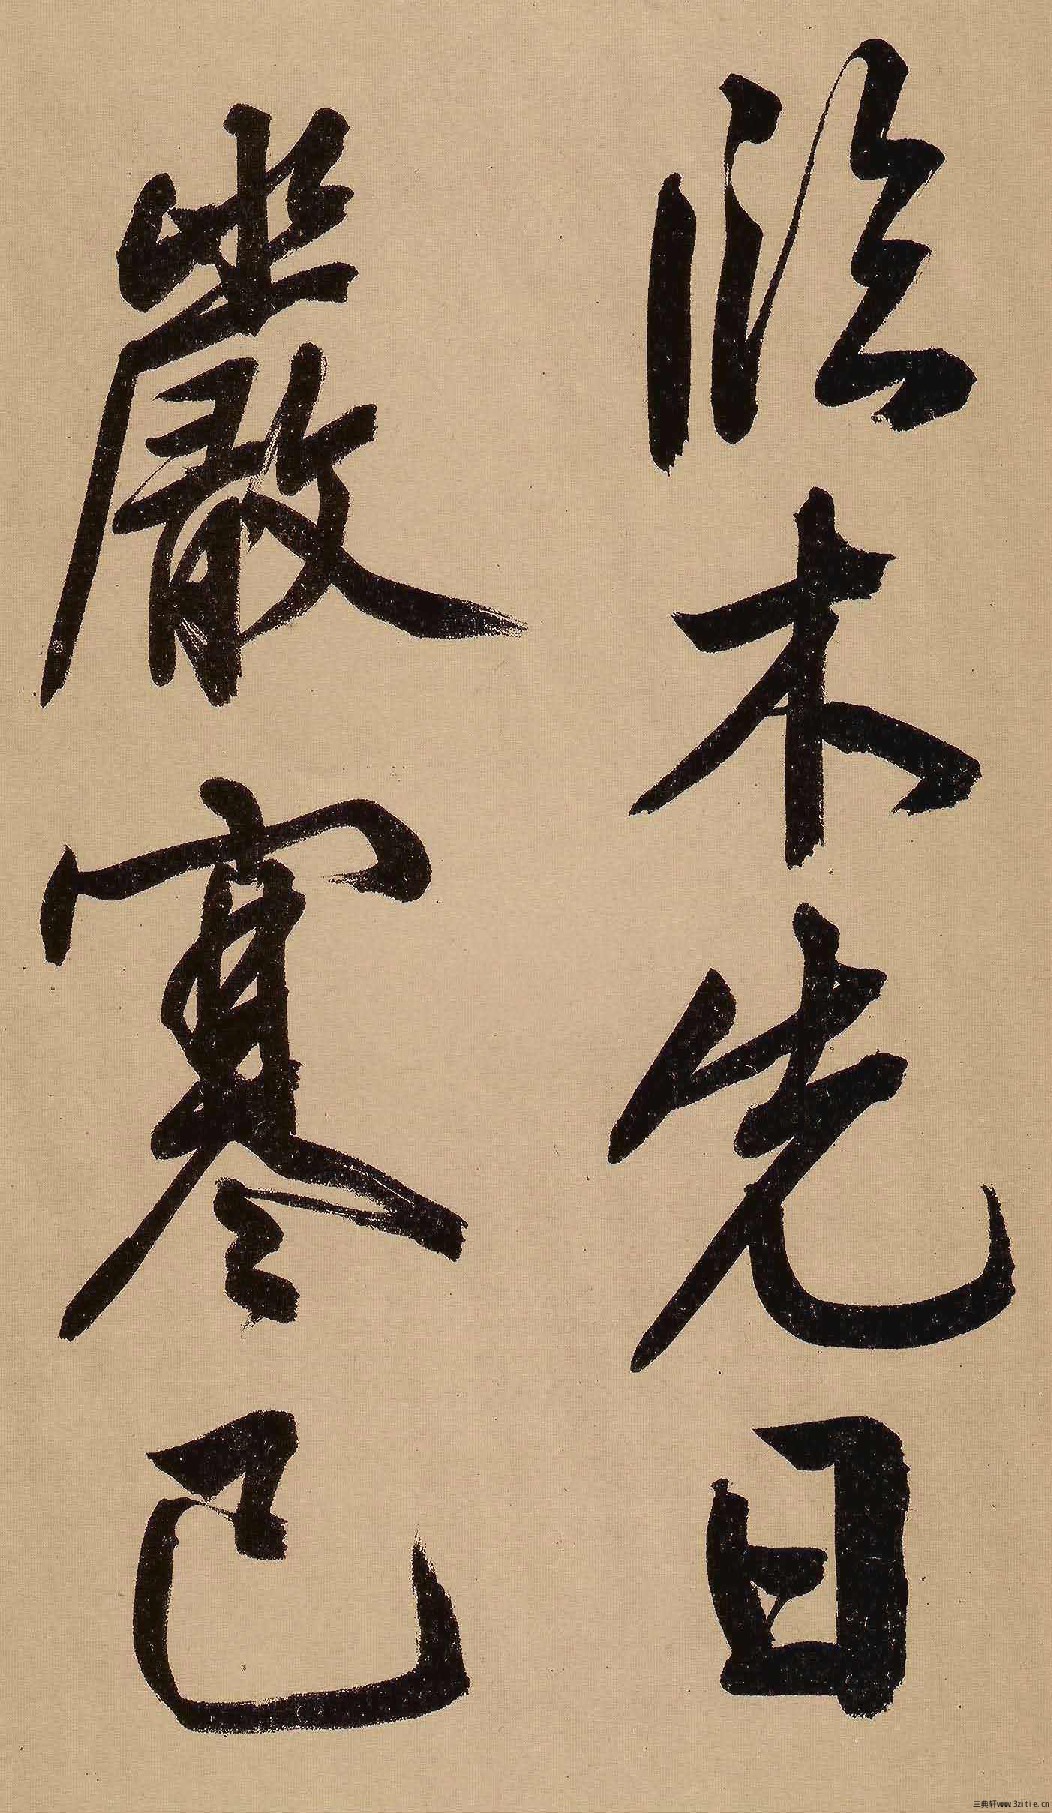 臨木先日
嚴寒已
三典轩www.3zitie.cn